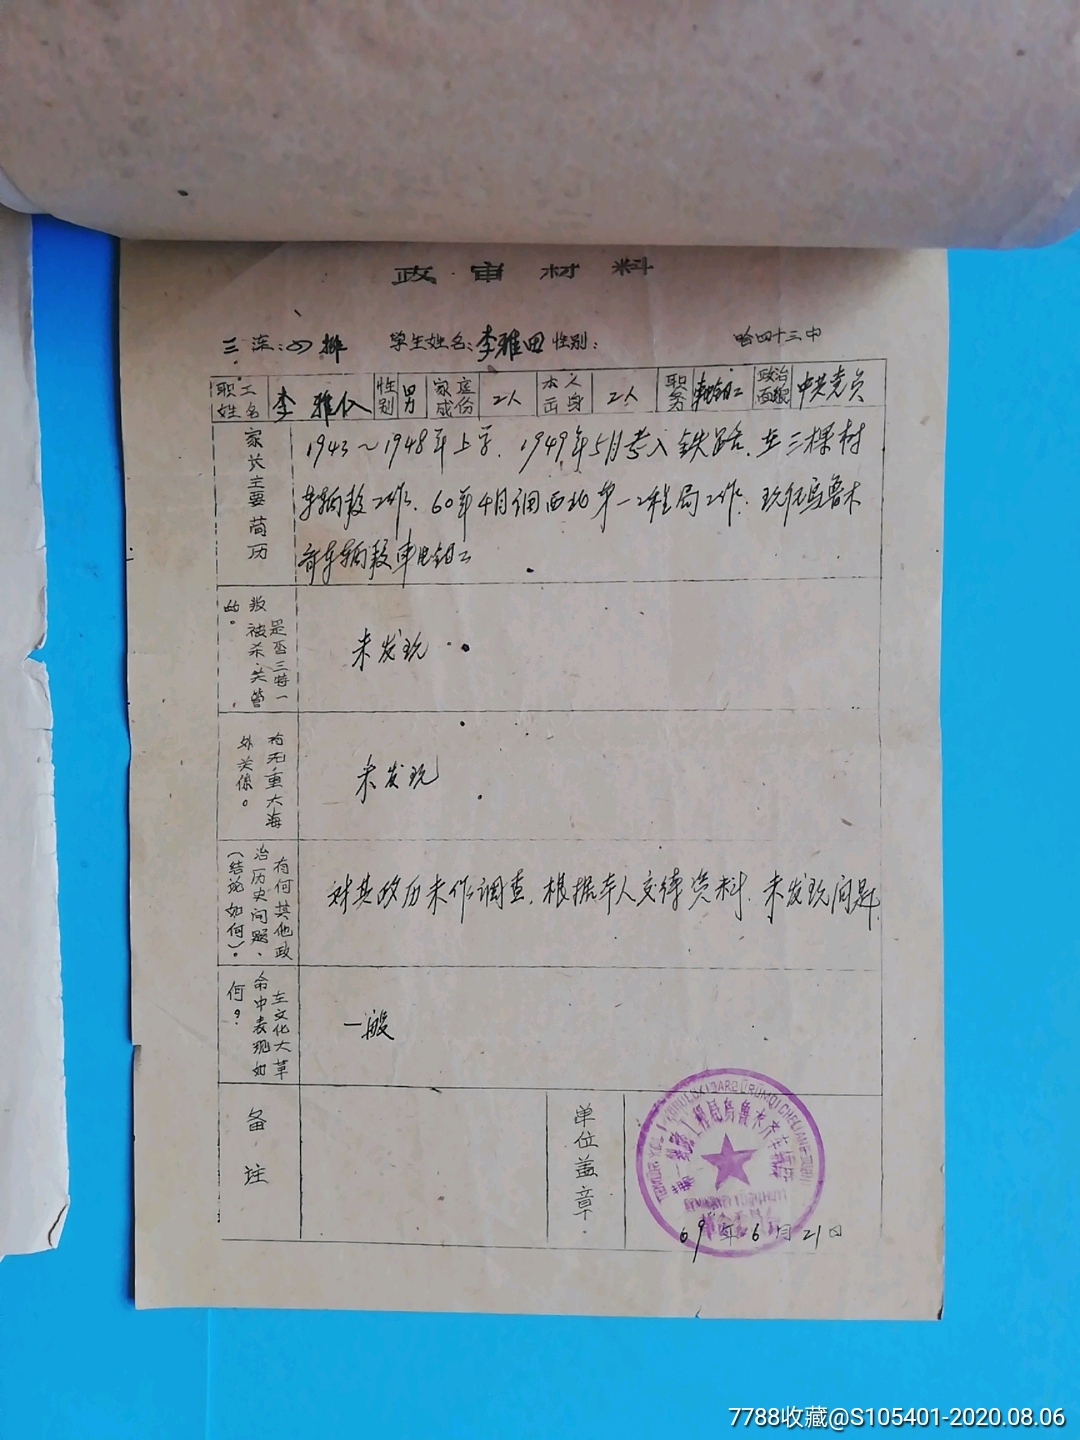 政审材料
三连:四排 学生姓名:李雅田 性别: 哈四十三中
职工姓名 李雅仁 性别 男 家庭成份 工人 本人出身 工人 职务 电钳工 政治面貌 中共党员
家长主要简历
1943～1948年上学.1949年5月考入铁路.在三棵树
车辆段工作.60年4月调西北第一工程局工作.现任乌鲁木
齐车辆段电钳工
是否三特一叛被杀.关管的。
未发现
有无重大海外关係。
未发现
有何其他政治历史问题、(结论如何)。
对其政历未作调查.根据本人交待资料.未发现问题
在文化大革命中表现如何?
一般
备注
单位盖章
第一铁路工程局乌鲁木齐车辆段
69年6月21日
7788收藏@S105401-2020.08.06